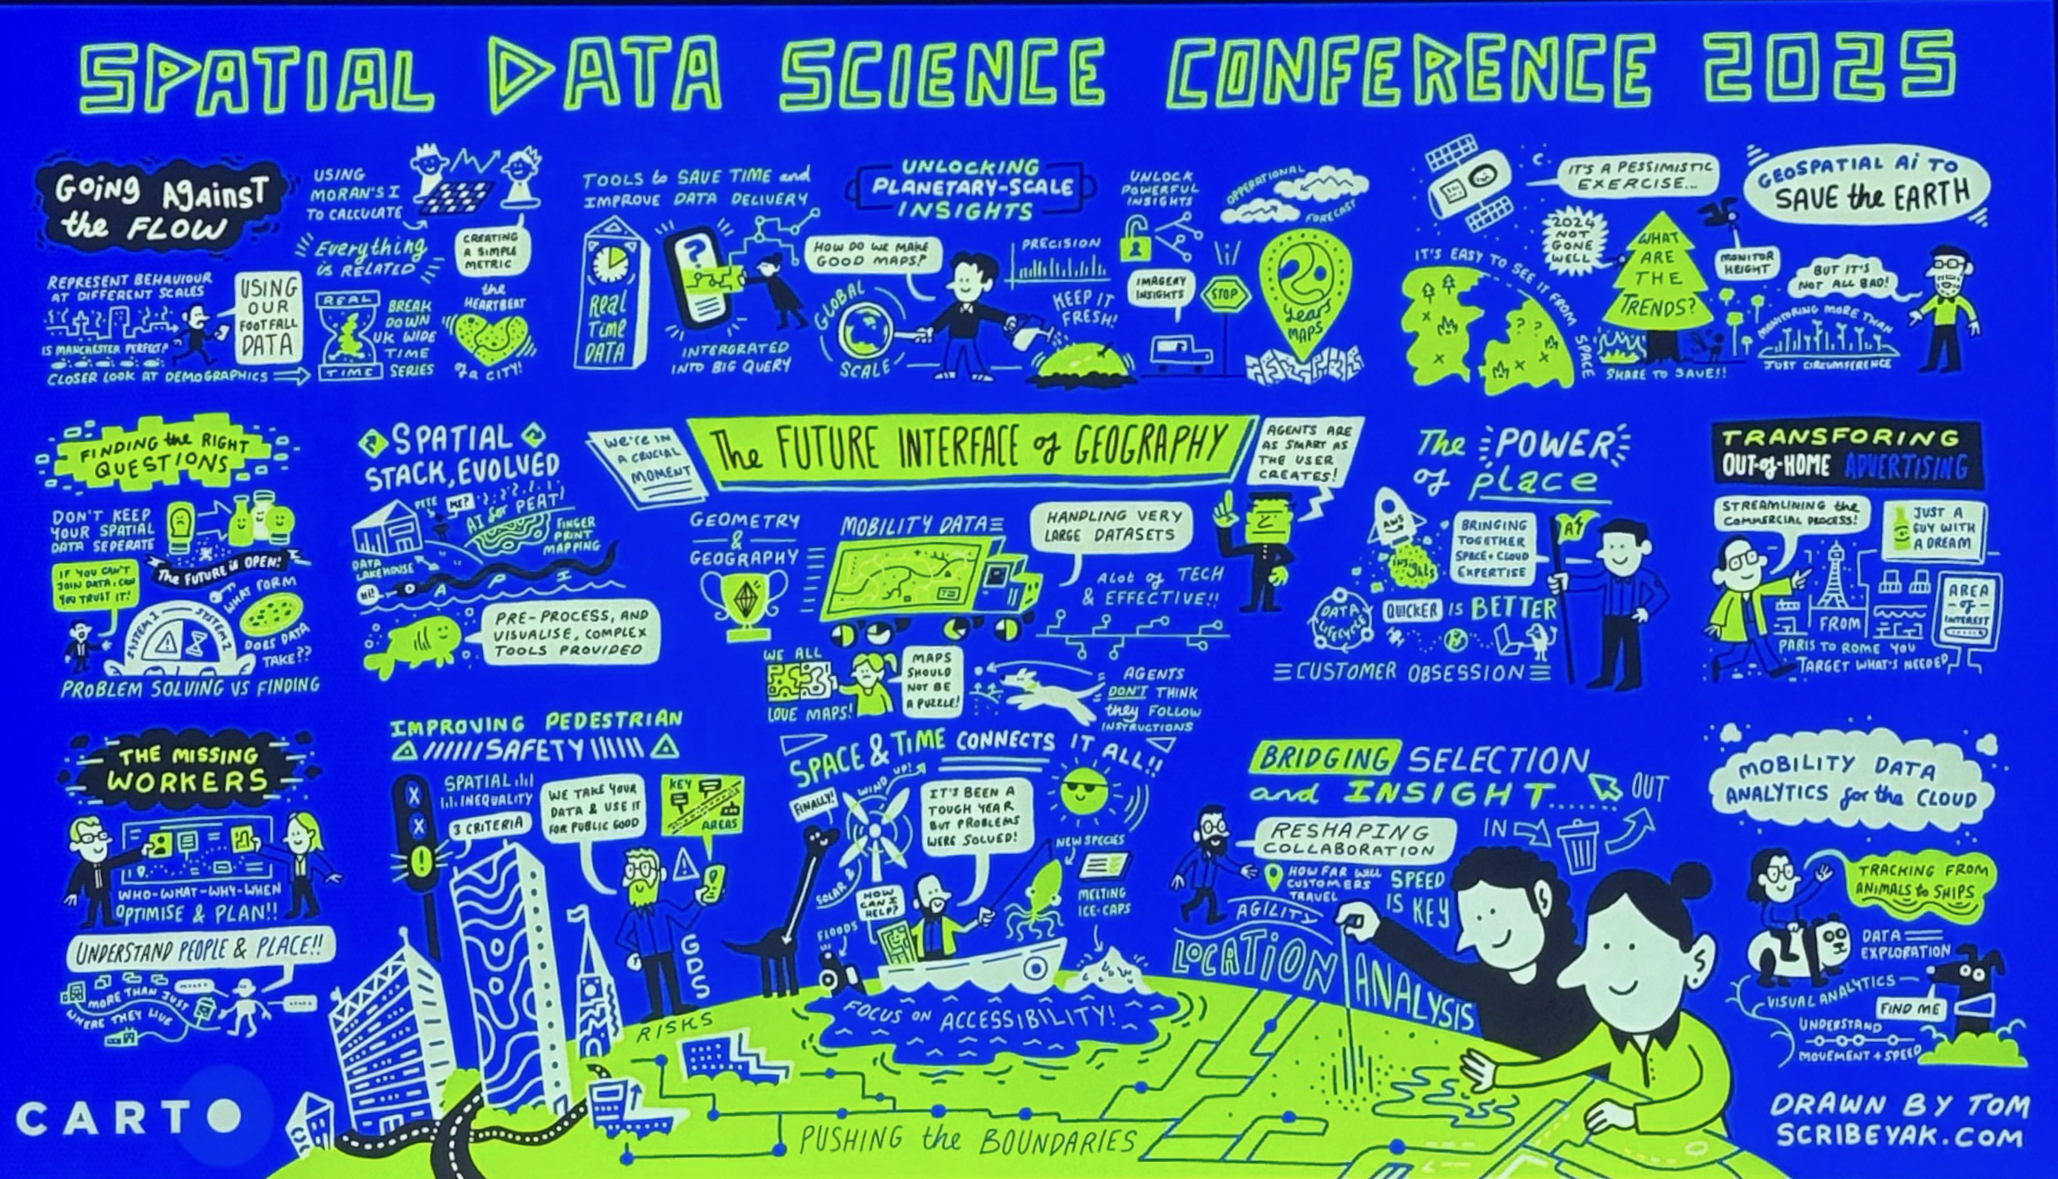 SPATIAL DATA SCIENCE CONFERENCE 2025
GOING AGAINST
the FLOW
USING
MORAN'S I
TO CALCULATE
Everything
is RELATED
CREATING
A SIMPLE
METRIC
REPRESENT BEHAVIOUR
AT DIFFERENT SCALES
IS MANCHESTER PERFECT?
CLOSER LOOK AT DEMOGRAPHICS
USING
OUR
FOOTFALL
DATA
REAL
TIME
BREAK
DOWN
UK WIDE
TIME
SERIES
the
HEARTBEAT
of a CITY!
TOOLS to SAVE TIME and
IMPROVE DATA DELIVERY
Real
Time
DATA
?
INTERGRATED
INTO BIG QUERY
UNLOCKING
PLANETARY-SCALE
INSIGHTS
HOW DO WE MAKE
GOOD MAPS?
GLOBAL
SCALE
PRECISION
KEEP IT
FRESH!
UNLOCK
POWERFUL
INSIGHTS
IMAGERY
INSIGHTS
STOP
OPPERATIONAL
FORECAST
20
years
MAPS
IT'S A PESSIMISTIC
EXERCISE...
GEOSPATIAL AI TO
SAVE the EARTH
2024
NOT
GONE
WELL
IT'S EASY TO SEE IT FROM SPACE
WHAT
ARE
THE
TRENDS?
SHARE TO SAVE!!
MONITOR
HEIGHT
BUT IT'S
NOT ALL BAD!
MONITORING MORE THAN
JUST CIRCUMFERENCE
FINDING the RIGHT
QUESTIONS
DON'T KEEP
YOUR SPATIAL
DATA SEPERATE
The FUTURE is OPEN!
IF YOU CAN'T
JOIN DATA, CAN
YOU TRUST IT!
SYSTEM 1
SYSTEM 2
WHAT FORM
DOES DATA
TAKE??
PROBLEM SOLVING VS FINDING
SPATIAL
STACK, EVOLVED
PETE
ME?
AI for PEAT!
FINGER
PRINT
MAPPING
DATA
LAKEHOUSE
Hi!
A P I
PRE-PROCESS, AND
VISUALISE, COMPLEX
TOOLS PROVIDED
WE'RE IN
A CRUCIAL
MOMENT
The FUTURE INTERFACE of GEOGRAPHY
AGENTS ARE
AS SMART AS
THE USER
CREATES!
GEOMETRY
&
GEOGRAPHY
MOBILITY DATA
HANDLING VERY
LARGE DATASETS
ALOT of TECH
& EFFECTIVE!!
WE ALL
LOVE MAPS!
MAPS
SHOULD
NOT BE
A PUZZLE!
AGENTS
DON'T THINK
they FOLLOW
INSTRUCTIONS
The POWER
of place
AWS
INSIGHTS
BRINGING
TOGETHER
SPACE + CLOUD
EXPERTISE
DATA
LIFECYCLE
QUICKER IS BETTER
CUSTOMER OBSESSION
TRANSFORING
OUT-of-HOME ADVERTISING
STREAMLINING the
COMMERCIAL PROCESS!
JUST A
GUY WITH
A DREAM
AREA
OF
INTEREST
FROM
PARIS TO ROME YOU
TARGET WHAT'S NEEDED
THE MISSING
WORKERS
WHO-WHAT-WHY-WHEN
OPTIMISE & PLAN!!
UNDERSTAND PEOPLE & PLACE!!
MORE THAN JUST
WHERE THEY LIVE
IMPROVING PEDESTRIAN
SAFETY
SPATIAL
INEQUALITY
3 CRITERIA
WE TAKE YOUR
DATA & USE IT
FOR PUBLIC GOOD
KEY
AREAS
GDS
RISKS
SPACE & TIME CONNECTS IT ALL!!
FINALLY!
WIND UP!
SOLAR &
IT'S BEEN A
TOUGH YEAR
BUT PROBLEMS
WERE SOLVED!
HOW
CAN I
HELP?
FLOODS
NEW SPECIES
MELTING
ICE-CAPS
FOCUS ON ACCESSIBILITY!
BRIDGING SELECTION
and INSIGHT
OUT
IN
RESHAPING
COLLABORATION
HOW FAR WILL
CUSTOMERS
TRAVEL
SPEED
IS KEY
AGILITY
LOCATION ANALYSIS
MOBILITY DATA
ANALYTICS for the CLOUD
TRACKING FROM
ANIMALS to SHIPS
DATA
EXPLORATION
VISUAL ANALYTICS
FIND ME
UNDERSTAND
MOVEMENT + SPEED
CARTO
PUSHING the BOUNDARIES
DRAWN BY TOM
SCRIBEYAK.COM